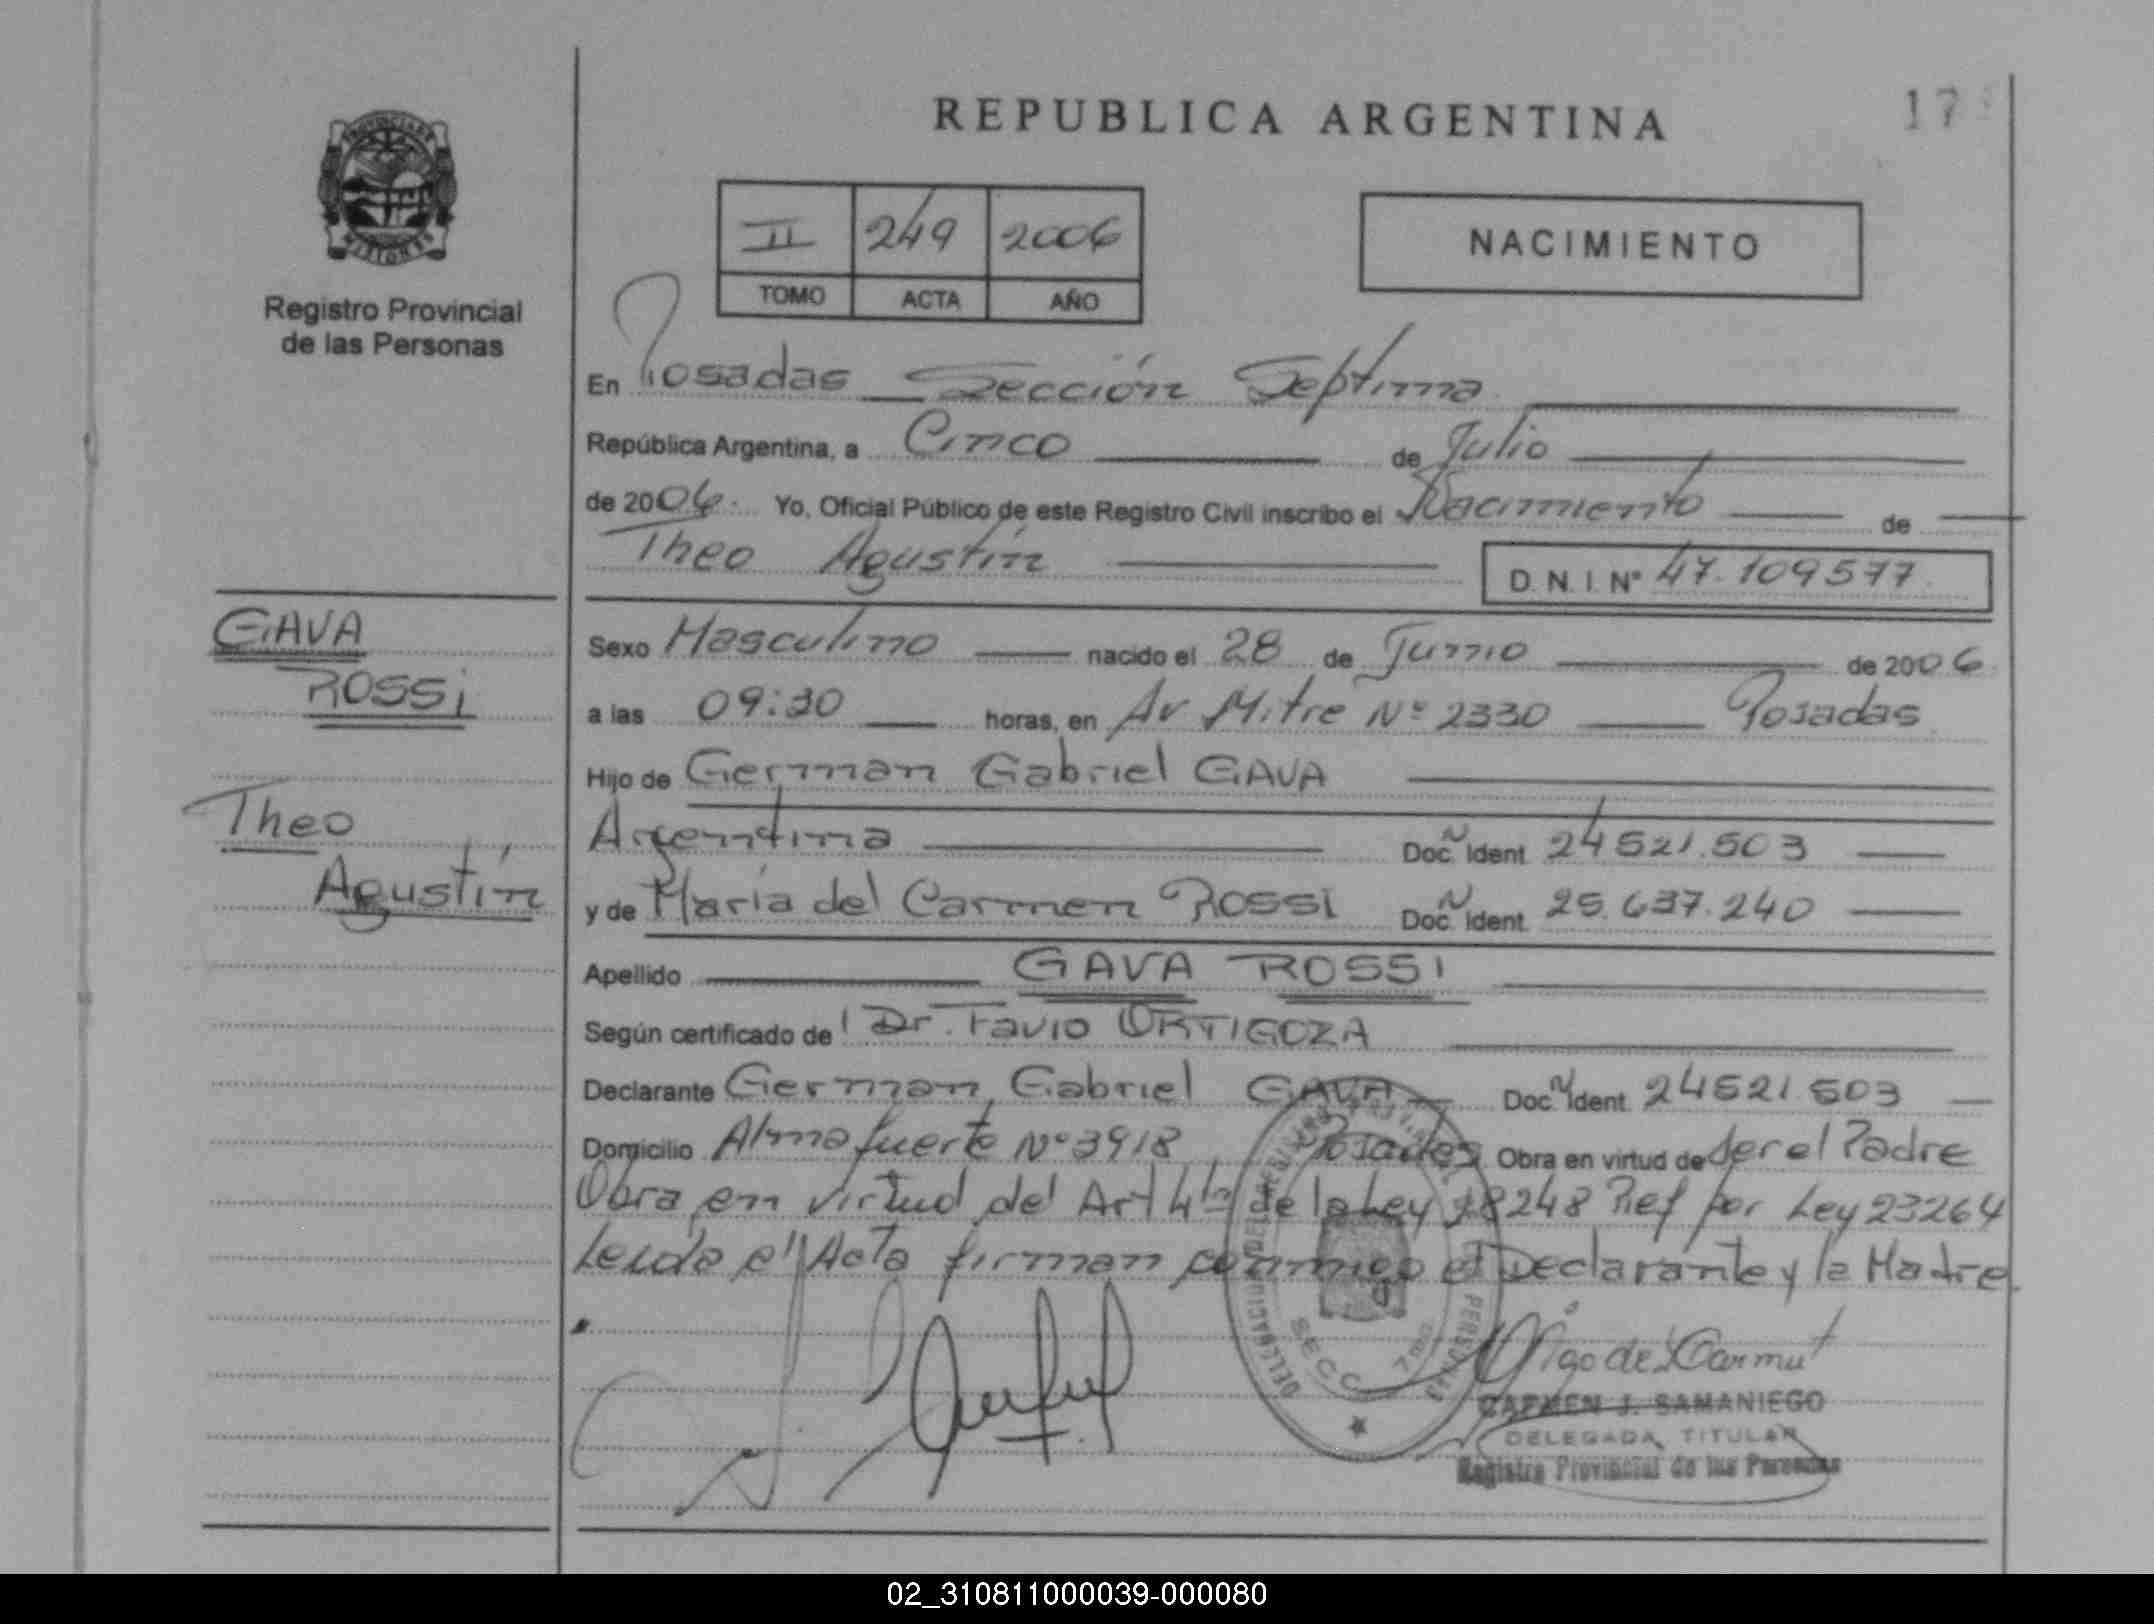 REPUBLICA ARGENTINA
17
PROVINCIA DE
MISIONES
Registro Provincial
de las Personas
II 249 2006
TOMO ACTA AÑO
NACIMIENTO
En Posadas Sección Septima
República Argentina, a Cinco de Julio
de 2006. Yo, Oficial Público de este Registro Civil inscribo el Nacimiento de
Theo Agustín D. N. I. Nº 47.109577
GAVA
ROSSi
Theo
Agustín
Sexo Masculino nacido el 28 de Junio de 2006
a las 09:30 horas, en Av Mitre Nº 2330 Posadas
Hijo de German Gabriel GAVA
Argentina Doc. Ident 24521.503
y de María del Carmen ROSSI Doc. Ident. 25.637.240
Apellido GAVA ROSSI
Según certificado de Dr. Favio ORTIGOZA
Declarante German Gabriel GAVA Doc. Ident. 24521.503
Domicilio Almafuerte Nº 3918 Posadas Obra en virtud de ser el Padre
Obra en virtud del Art 4to de la Ley 18248 Ref por Ley 23264
Leida el Acta firman conmigo el Declarante y la Madre.
SECC. 7ma
CARMEN J. SAMANIEGO
DELEGADA TITULAR
Registro Provincial de las Personas
02_310811000039-000080